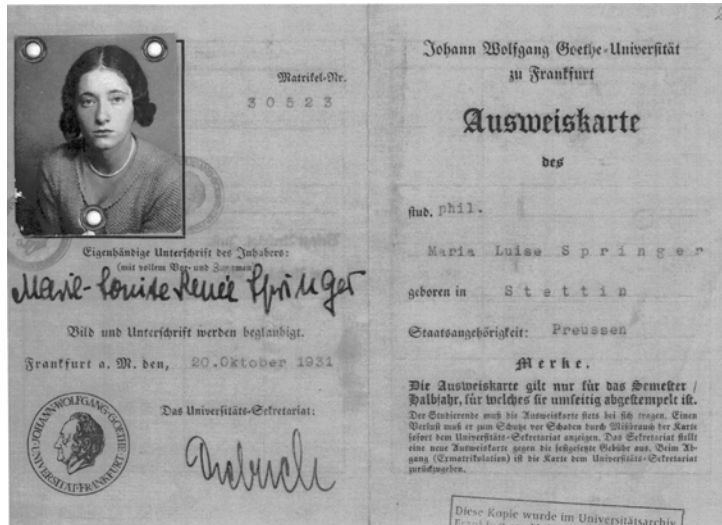 Matrikel-Nr.
30523
Eigenhändige Unterschrift des Inhabers:
(mit vollem Vor- und Zunamen)
Marie-Louise Renée Springer
Bild und Unterschrift werden beglaubigt.
Frankfurt a. M. den, 20.Oktober 1931
Das Universitäts-Sekretariat:
JOHANN-WOLFGANG-GOETHE-UNIVERSITÄT-FRANKFURT
Johann Wolfgang Goethe-Universität
zu Frankfurt
Ausweiskarte
des
stud. phil.
Maria Luise Springer
geboren in Stettin
Staatsangehörigkeit: Preussen
Merke.
Die Ausweiskarte gilt nur für das Semester /
Halbjahr, für welches sie umseitig abgestempelt ist.
Der Studierende muß die Ausweiskarte stets bei sich tragen. Einen
Verlust muß er zum Schutze vor Schaden durch Mißbrauch der Karte
sofort dem Universitäts-Sekretariat anzeigen. Das Sekretariat stellt
eine neue Ausweiskarte gegen die festgesetzte Gebühr aus. Beim Ab-
gang (Exmatrikulation) ist die Karte dem Universitäts-Sekretariat
zurückzugeben.
Diese Kopie wurde im Universitätsarchiv